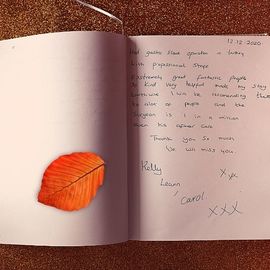 12.12.2020
Had gastric sleeve operation in turkey
with professional staff
Extremely great fantastic people
So kind very helpful made my stay
worthwile I will be recommending them
to alot of people and the
Surgeon is 1 in a million
even his after care
Thank you so much
We will miss you.
Kelly
Leam
Carol
XXX